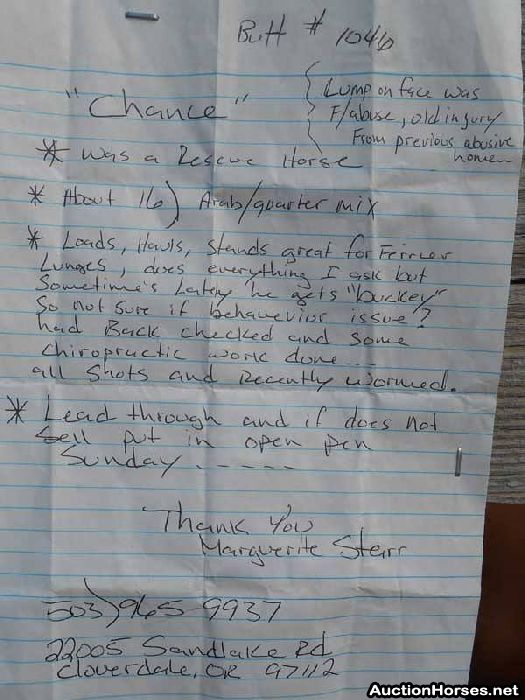 Butt # 1046
"Chance"
Lump on face was
F/abuse, old ingury
From previous abusive
home...
* was a Rescue Horse
* About 16) Arab/quarter mix
* Loads, Hauls, Stands great for Ferrier
Lunges, does everything I ask but
Sometime's Lately he gets "bucky"
So not sure if behavevior issue?
had Back checked and some
chiropractic work done...
all Shots and Recently wormed.
* Lead through and if does not
Sell put in open pen
Sunday.-----
Thank You
Marguerite Starr
503) 965-9937
22005 Sandlake Rd
Cloverdale, OR 97112
AuctionHorses.net